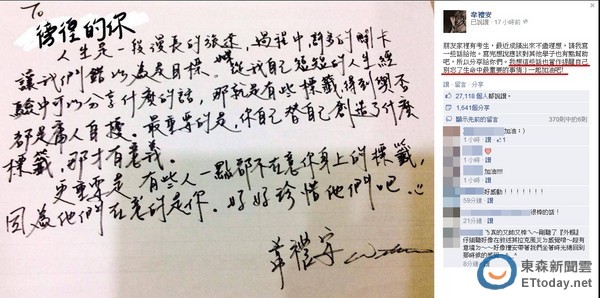 To
徬徨的你
人生是一段漫長的旅途，過程中許多的關卡
讓我們錯以為是目標。從我自己短短的人生經
驗中可以分享什麼的話，那就是有些標籤，得到與否
都是庸人自擾。最重要的是，你自己替自己創造了什麼
標籤，那才有意義。
更重要是，有些人一點都不在意你身上的標籤，
因為他們在意的是你。好好珍惜他們吧。
韋禮安
韋禮安
已說讚 · 17 小時前
朋友家裡有考生，最近成績出來不盡理想，請我寫
一些話給他。寫完想說應該對其他學子也有點幫助
吧，所以分享給你們。我想這些話也當作提醒自己
別忘了生命中最重要的事情:) 一起加油吧!
讚 · 留言 · 分享
27,118 個人都說讚。
1,641個分享
顯示先前的留言
370則中的6則
加油:)
1小時 · 讚
1小時 · 讚
加油!!!!
1小時 · 讚
好感動!
59分鐘 · 讚
很棒的話!
21分鐘 · 讚
ETtoday
東森新聞雲
ETtoday.net